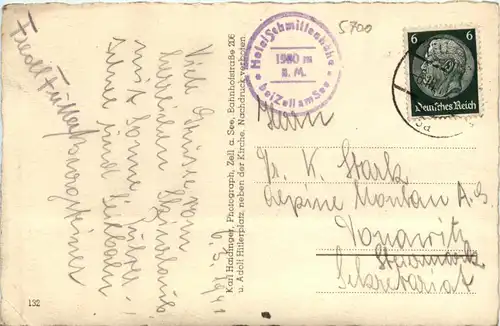 5700
Hotel Schmittenhöhe
1980 m
ü. M.
bei Zell am See
6
6
Deutsches Reich
Herrn
Dr. K. Stark
Alpine Montan A.G.
Donawitz
Steiermark
Sekretariat
Viele Grüsse vom
herrlichen
mit Sonne,
Schnee und Seilbahn
6.3.1941
Karl Haidinger, Photograph, Zell a. See, Bahnhofstraße 206
u. Adolf Hitlerplatz, neben der Kirche. Nachdruck verboten.
132